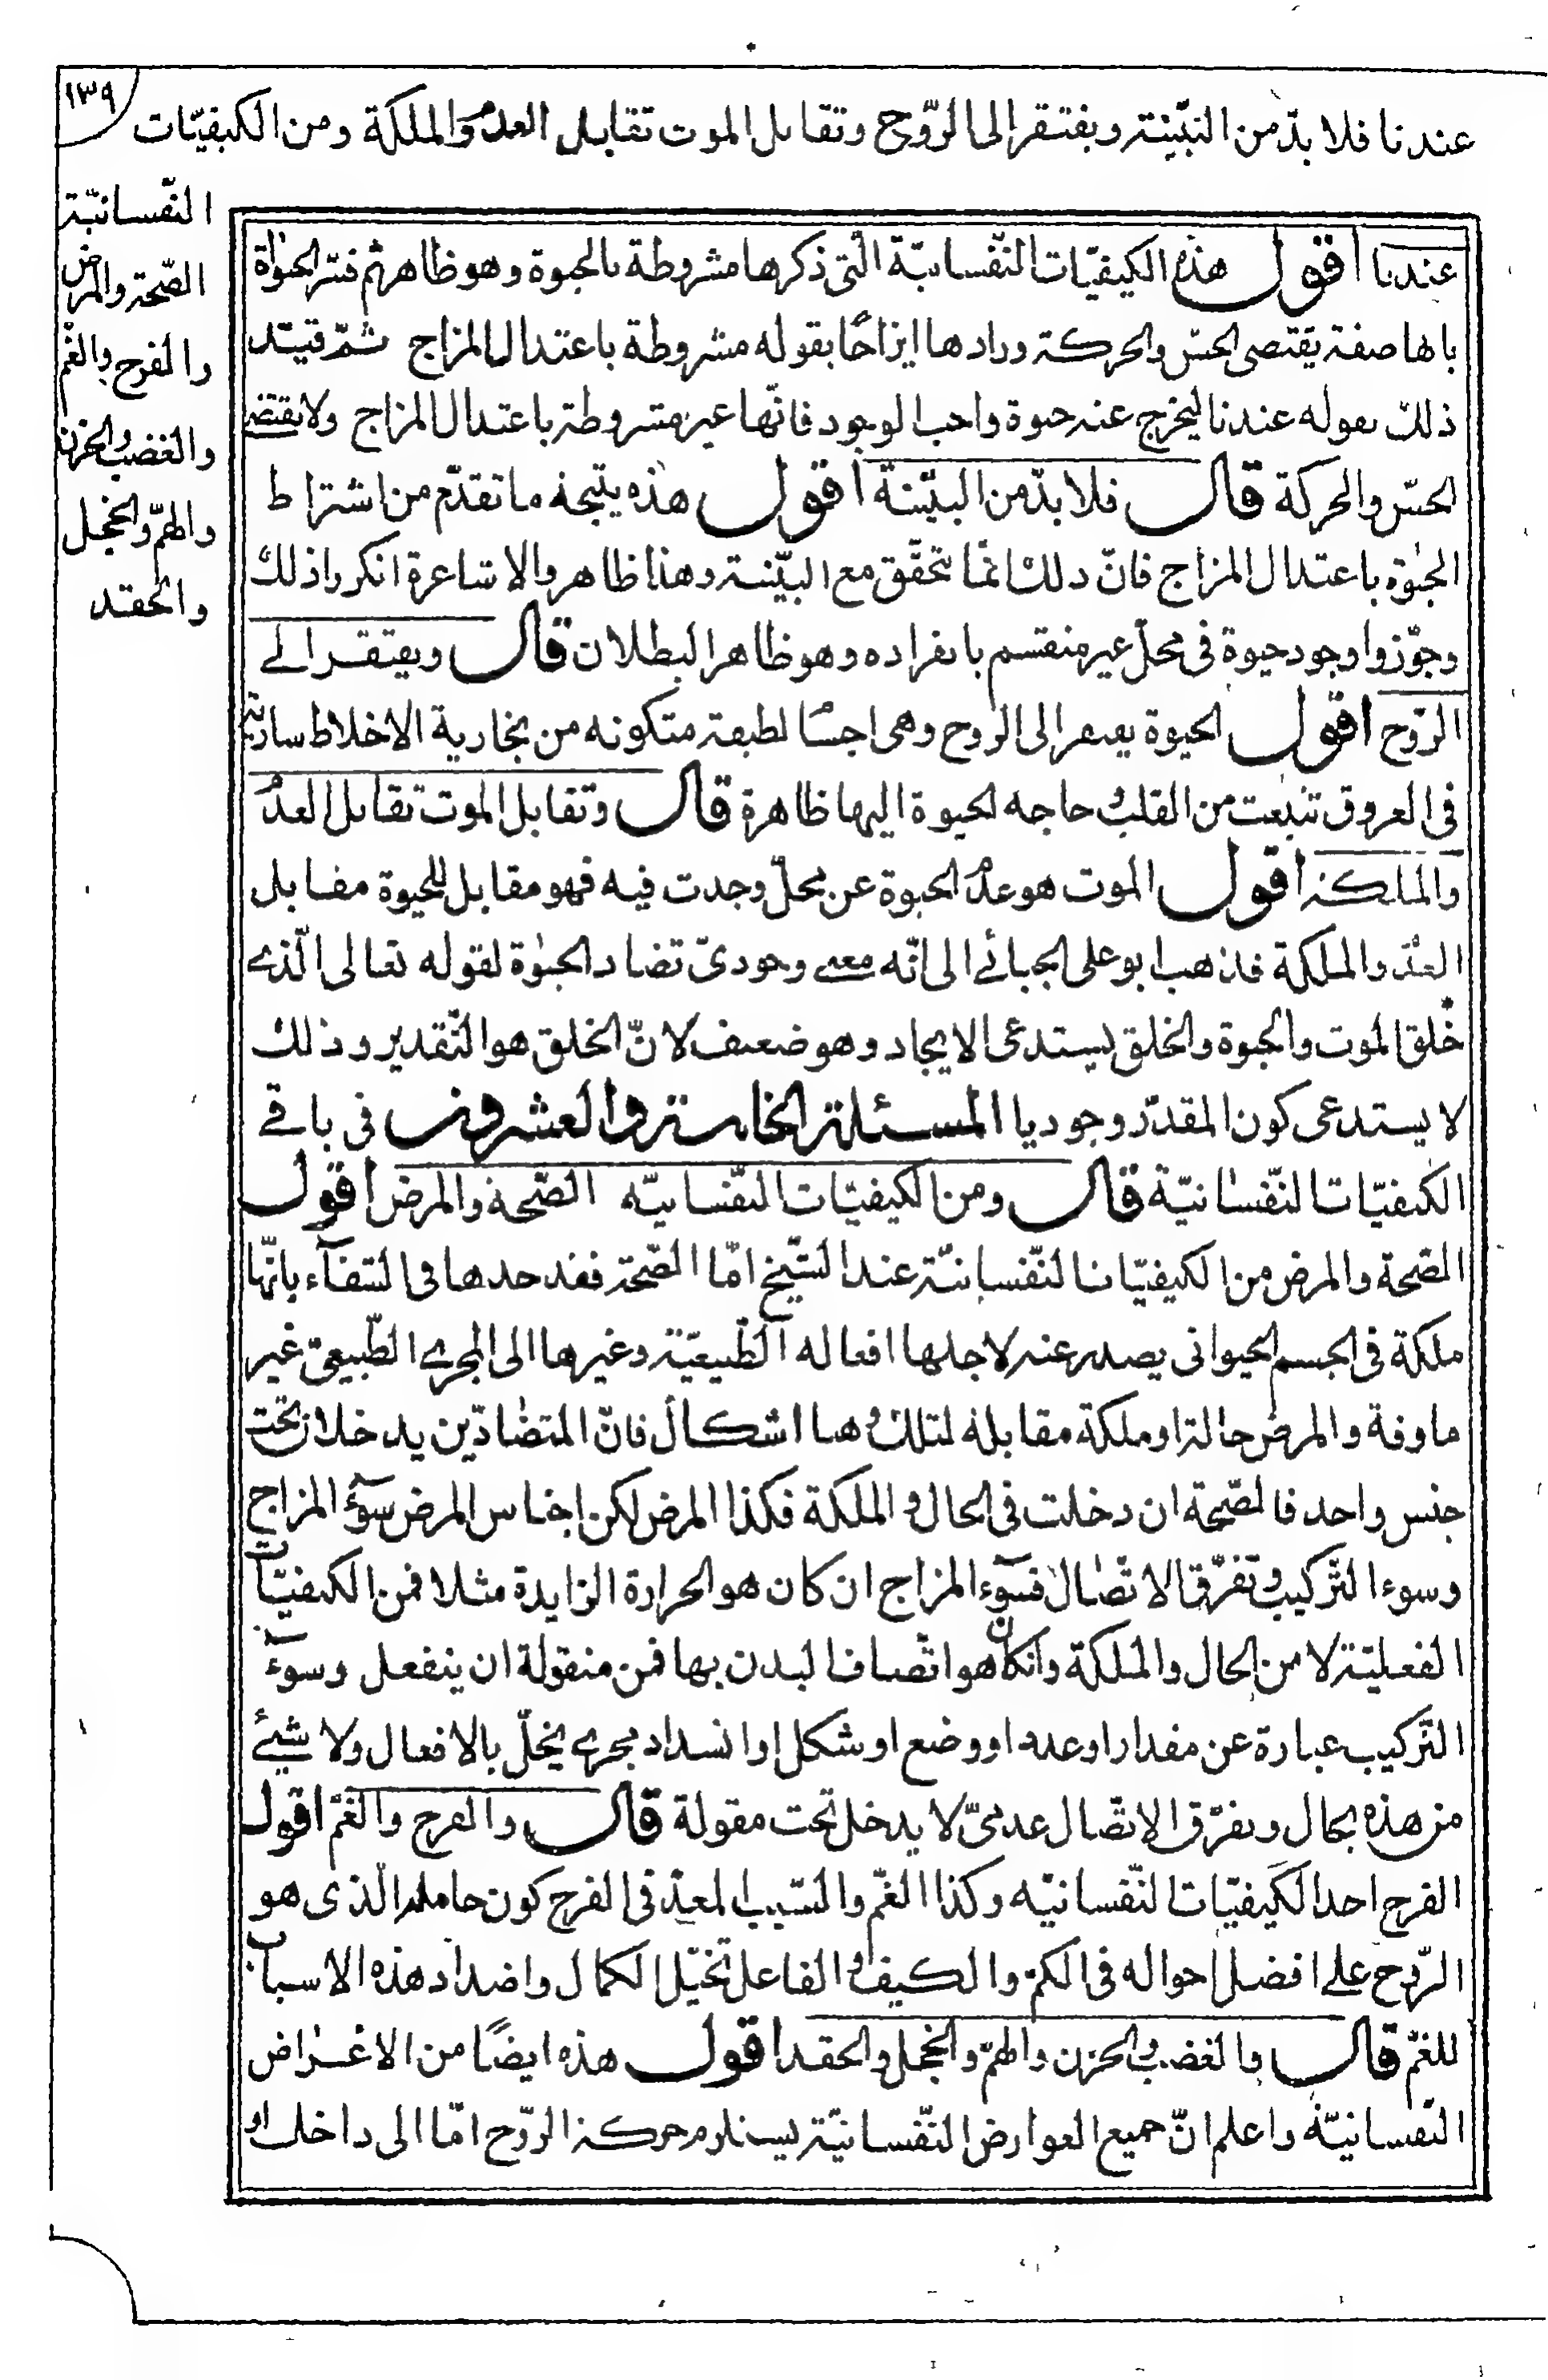 ١٣٩
عندنا فلا بدّ من البنية ويفتقر إلى الرّوح وتقابل الموت تقابل العدم والملكة ومن الكيفيّات
النّفسانيّة
الصّحة والمرض
والفرح والغمّ
والغضب والحزن
والهمّ والخجل
والحقد
عندنا اقول هذه الكيفيّات النّفسانيّة الّتي ذكرها مشروطة بالحيوة وهو ظاهر ثم فسّر الحيوة
بانها صفة يقتضي الحسّ والحركة وزادها ايزاحًا بقوله مشروطة باعتدال المزاج ثمّ قيّد
ذلك بقوله عندنا ليخرج عنه حيوة واجب الوجود فانّها غير مشروطة باعتدال المزاج ولا يقتضي
الحسّ والحركة قال فلا بدّ من البنية اقول هذه نتيجة ما تقدّم من اشتراط
الحيوة باعتدال المزاج فانّ ذلك انّما تحقّق مع البنية وهذا ظاهر والاشاعرة انكروا ذلك
وجوّزوا وجود حيوة في محلّ غير منقسم بانفراده وهو ظاهر البطلان قال ويفتقر الى
الرّوح اقول الحيوة يفتقر الى الرّوح وهي اجسام لطيفة متكونه من بخارية الاخلاط سارية
في العروق تنبعث من القلب و حاجه الحيوة اليها ظاهرة قال وتقابل الموت تقابل العدم
والملكة اقول الموت هو عدم الحيوة عن محلّ وجدت فيه فهو مقابل للحيوة مقابل
العدم والملكة فذهب ابو على الجبائي الى انّه معنى وجوديّ تضاد الحيوة لقوله تعالى الّذي
خلق الموت والحيوة والخلق يستدعى الايجاد وهو ضعيف لانّ الخلق هو التّقدير وذلك
لا يستدعى كون المقدّر وجوديا المسئلة الخامسة والعشرون في باقي
الكيفيّات النّفسانيّة قال ومن الكيفيّات النّفسانيّه الصّحة والمرض اقول
الصّحة والمرض من الكيفيّات النّفسانيّة عند الشّيخ امّا الصّحة فقد حدها في الشفآء بانّها
ملكة في الجسم الحيواني يصدر عنه لاجلها افعاله الطّبيعيّة وغيرها الى المجرى الطّبيعيّ غير
ماوفة والمرض حالة او ملكة مقابلة لتلك و هنا اشكال فانّ المتضادّين يدخلان تحت
جنس واحد فالصّحة ان دخلت في الحال و الملكة فكذا المرض لكن اجناس المرض سوء المزاج
وسوء التّركيب وتفرّق الاتّصال فسوء المزاج ان كان هو الحرارة الزايدة مثلا فمن الكيفيّات
الفعليّة لا من الحال والملكة وان كان هو اتّصاف البدن بها فمن مقولة ان ينفعل وسوء
التّركيب عبارة عن مقدار او عدد او وضع او شكل او انسداد مجرى يخلّ بالافعال ولا شيئ
من هذه بحال وتفرّق الاتّصال عدميّ لا يدخل تحت مقولة قال والفرح والغمّ اقول
الفرح احد الكيفيّات النّفسانيّه وكذا الغمّ والسّبب المعدّ في الفرح كون حامله الّذي هو
الرّوح على افضل احواله في الكمّ والكيف و الفاعل تخيّل الكمال واضداد هذه الاسباب
للغمّ قال والغضب والحزن والهمّ والخجل والحقد اقول هذه ايضًا من الاعراض
النّفسانيّة واعلم انّ جميع العوارض النّفسانيّة يستلزم حركة الرّوح امّا الى داخل او